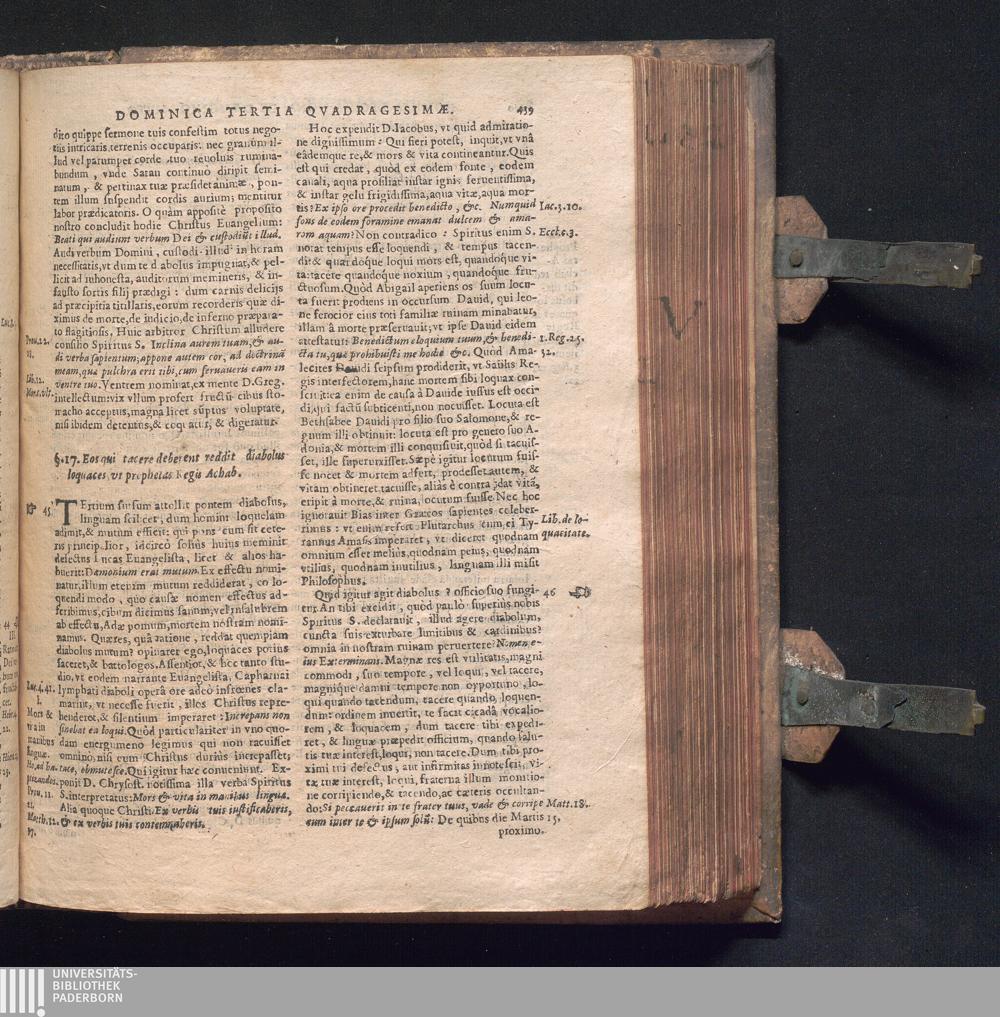 DOMINICA TERTIA QVADRAGESIMÆ. 439
dito quippe sermone tuis confestim totus nego-
tiis intricaris, terrenis occuparis: nec granum il-
lud vel parumper corde tuo reuoluis rumina-
bundum, vnde Satan continuò diripit semi-
natum, & pertinax tuæ præsidet animæ, pon-
tem illum suspendit cordis aurium; mentitur
labor prædicatoris. O quàm appositè proposito
nostro concludit hodie Christus Euangelium:
Beati qui audiunt verbum Dei & custodiūt illud.
Audi verbum Domini, custodi illud in horam
necessitatis, vt dum te diabolus impugnat, & pel-
licit ad inhonesta, auditorum memineris, & in-
fausto sortis filij prædigi: dum carnis delicijs
ad præcipitia titillaris, eorum recorderis quæ di-
ximus de morte, de iudicio, de inferno præpara-
to flagitiosis. Huic arbitror Christum alludere
consilio Spiritus S. Inclina aurem tuam, & au-
di verba sapientum; appone autem cor, ad doctrinā
meam, quæ pulchra erit tibi, cum seruaueris eam in
ventre tuo. Ventrem nominat, ex mente D. Greg.
intellectum: vix vllum profert fructū cibus sto-
macho acceptus, magna licet sūptus voluptate,
nisi ibidem detentus, & coquatur, & digeratur.
§. 17. Eos qui tacere deberent reddit diabolus
loquaces vt prophetas Regis Achab.
45. TErtium sursum attollit pontem diabolus,
linguam scilicet, dum homini loquelam
adimit, & mutum efficit: qui pons cum sit cete-
ris principalior, idcircò solius huius meminit
defectus Lucas Euangelista, licet & alios ha-
buerit: Dæmonium erat mutum. Ex effectu nomi-
natur, illum etenim mutum reddiderat, eo lo-
quendi modo, quo causæ nomen effectus ad-
scribimus, cibum dicimus sanum, vel insalubrem
ab effectu, Adæ pomum, mortem nostram nomi-
namus. Quæres, quâ ratione, reddat quempiam
diabolus mutum? opinarer ego, loquaces potius
faceret, & battologos. Assentior, & hoc tanto stu-
dio, vt eodem narrante Euangelista, Capharnai
lymphati diaboli operâ ore adeò infrœnes cla-
marint, vt necesse fuerit, illos Christus repre-
henderet, & silentium imperaret: Increpans non
sinebat ea loqui. Quòd particulariter in vno quo-
dam energumeno legimus qui non tacuisset
omnino, nisi eum Christus duriùs increpasset;
tace, obmutesce. Qui igitur hæc conueniunt. Ex-
ponit D. Chrysost. notissima illa verba Spiritus
S. interpretatus: Mors & vita in manibus linguæ.
Alia quoque Christi: Ex verbis tuis iustificaberis,
& ex verbis tuis contemnaberis.
Luc. 4. 41.
Mors &
manibus
linguæ.
Matth. 12.
Hoc expendit D. Iacobus, vt quid admiratio-
ne dignissimum: Qui fieri potest, inquit, vt vnâ
eâdemque re, & mors & vita contineantur. Quis
est qui credat, quòd ex eodem fonte, eodem
canali, aqua prosiliat instar ignis feruentissima,
& instar gelu frigidissima, aqua vitæ, aqua mor-
tis? Ex ipso ore procedit benedictio, &c. Numquid
fons de eodem foramine emanat dulcem & ama-
ram aquam? Non contradico: Spiritus enim S.
notat tempus esse loquendi, & tempus tacen-
di: & quandoque loqui mors est, quandoque vi-
ta: tacere quandoque noxium, quandoque fru-
ctuosum. Quòd Abigail aperiens os suum locu-
ta fuerit prodiens in occursum Dauid, qui leo-
ne ferocior eius toti familiæ ruinam minabatur,
illam à morte præseruauit; vt ipse Dauid eidem
attestatur: Benedictum eloquium tuum, & benedi-
cta tu, quæ prohibuisti me hodie &c. Quòd Ama-
lecites Dauidi seipsum prodiderit, vt Saülis Re-
gis interfectorem, hanc mortem sibi loquax con-
sciuit: ea enim de causa à Dauide iussus est occi-
di; qui factū subticenti, non nocuisset. Locuta est
Bethsabee Dauidi pro filio suo Salomone, & re-
gnum illi obtinuit: locuta est pro genero suo A-
donia, & mortem illi conquisiuit, quòd si tacuis-
set, ille superuixisset. Sæpè igitur locutum fuis-
se nocet & mortem adfert, prodesset autem, &
vitam obtineret tacuisse, aliàs è contra dat vitā,
eripit à morte, & ruina, locutum fuisse. Nec hoc
ignorauit Bias inter Græcos sapientes celeber-
rimus: vt enim refert Plutarchus cùm ei Ty-
rannus Amasis imperaret, vt diceret quodnam
omnium esset melius, quodnam peius, quodnam
vtilius, quodnam inutilius, linguam illi misit
Philosophus.
Quid igitur agit diabolus? officio suo fungi-
tur. An tibi excidit, quòd paulò superiùs nobis
Spiritus S. declarauit, illud agere diabolum,
cuncta suis exturbare limitibus & cardinibus?
omnia in nostram ruinam peruertere? Nomen e-
ius Exterminans. Magnæ res est vtilitatis, magni
commodi, suo tempore, vel loqui, vel tacere,
magnique damni tempore non opportuno, lo-
qui quando tacendum, tacere quando loquen-
dum: ordinem inuertit, te facit cicadâ vocalio-
rem, & loquacem, dum tacere tibi expedi-
ret, & linguæ præpedit officium, quando salu-
tis tuæ interest, loqui, non tacere. Dum tibi pro-
ximi tui defectus, aut infirmitas innotescit, vi-
tæ tuæ interest, loqui, fraterna illum monitio-
ne corripiendo, & tacendo, ac cæteris occultan-
do: Si peccauerit in te frater tuus, vade & corripe
eum inter te & ipsum solū: De quibus die Martis
proximo.
Iac. 3. 10.
Eccles. 3.
1. Reg. 25.
32.
Lib. de lo-
quacitate.
46
Matt. 18.
15.
V
UNIVERSITÄTS-
BIBLIOTHEK
PADERBORN